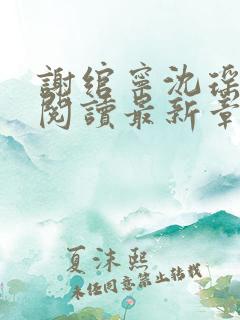 謝綰寧沈瑶
閱讀最新章
夏沫熙
未經同意禁止轉載